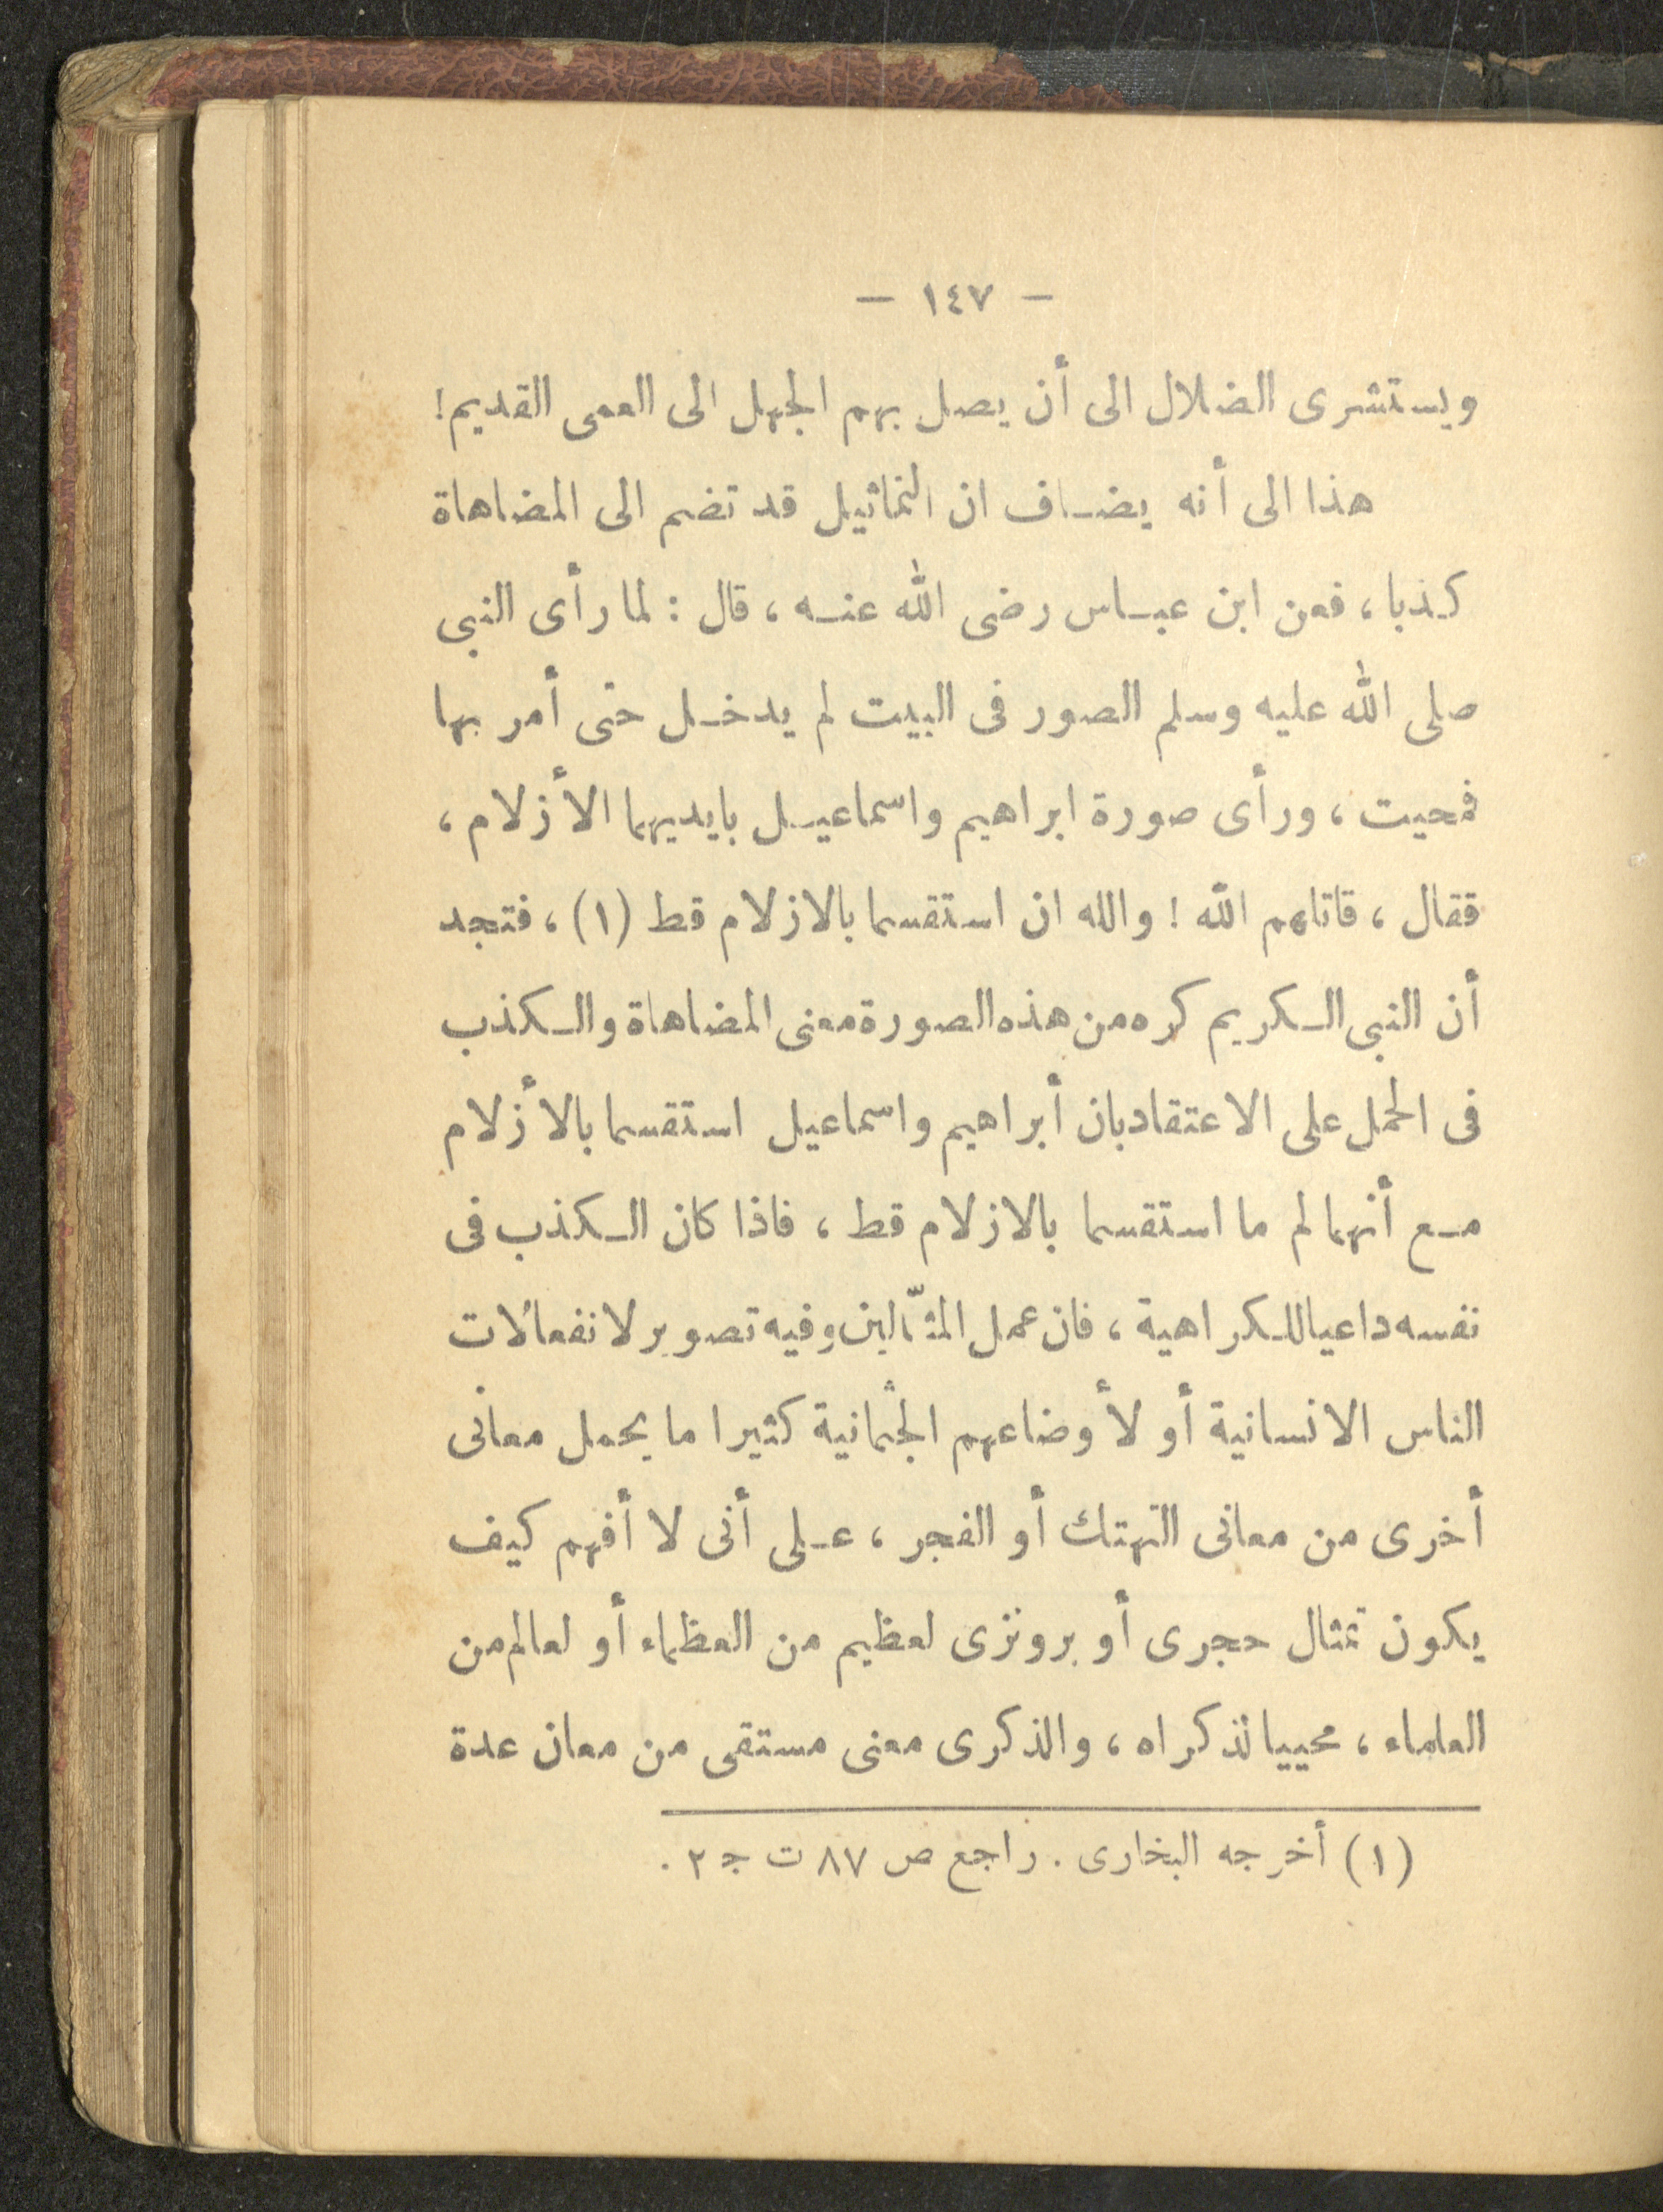 — ١٤٧ —
ويستشرى الضلال الى أن يصل بهم الجهل الى العمى القديم!
هذا الى أنه يضاف ان التماثيل قد تضم الى المضاهاة
كذبا، فعن ابن عباس رضى الله عنه، قال: لما رأى النبى
صلى الله عليه وسلم الصور فى البيت لم يدخل حتى أمر بها
فمحيت، ورأى صورة ابراهيم واسماعيل بايديهما الأزلام،
فقال، قاتلهم الله! والله ان استقسما بالازلام قط (١)، فتجد
أن النبى الكريم كره من هذه الصورة معنى المضاهاة والكذب
فى الحمل على الاعتقاد بان أبراهيم واسماعيل استقسما بالأزلام
مع أنهما لم ما استقسما بالازلام قط، فاذا كان الكذب فى
نفسه داعيا للكراهية، فان عمل المثّالين وفيه تصوير لانفعالات
الناس الانسانية أو لأوضاعهم الجثمانية كثيرا ما يحمل معانى
أخرى من معانى التهتك أو الفجر، على أنى لا أفهم كيف
يكون تمثال حجرى أو برونزى لعظيم من العظماء أو لعالم من
العلماء، محييا لذكراه، والذكرى معنى مستقى من معان عدة
(١) أخرجه البخارى. راجع ص ٨٧ ت ج ٢.